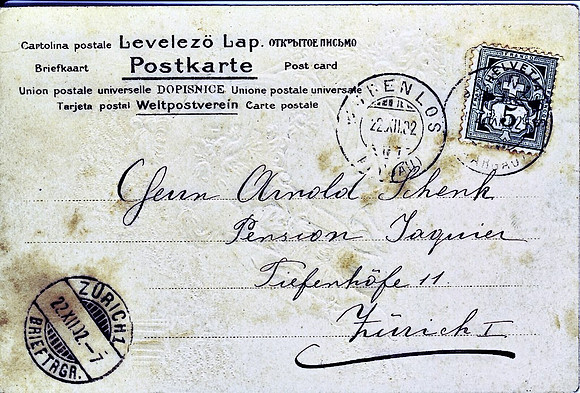 Cartolina postale Levelező Lap. ОТКРЫТОЕ ПИСЬМО
Briefkaart Postkarte Post card
Union postale universelle DOPISNICE Unione postale universale
Tarjeta postal Weltpostverein Carte postale
WÜRENLOS
22.XII.02
HELVETIA
5
Herrn Arnold Schenk
Pension Jaquier
Tiefenhöfe 11
Zürich I
ZÜRICH 1
22.XII.02.-7
BRIEFTRGR.